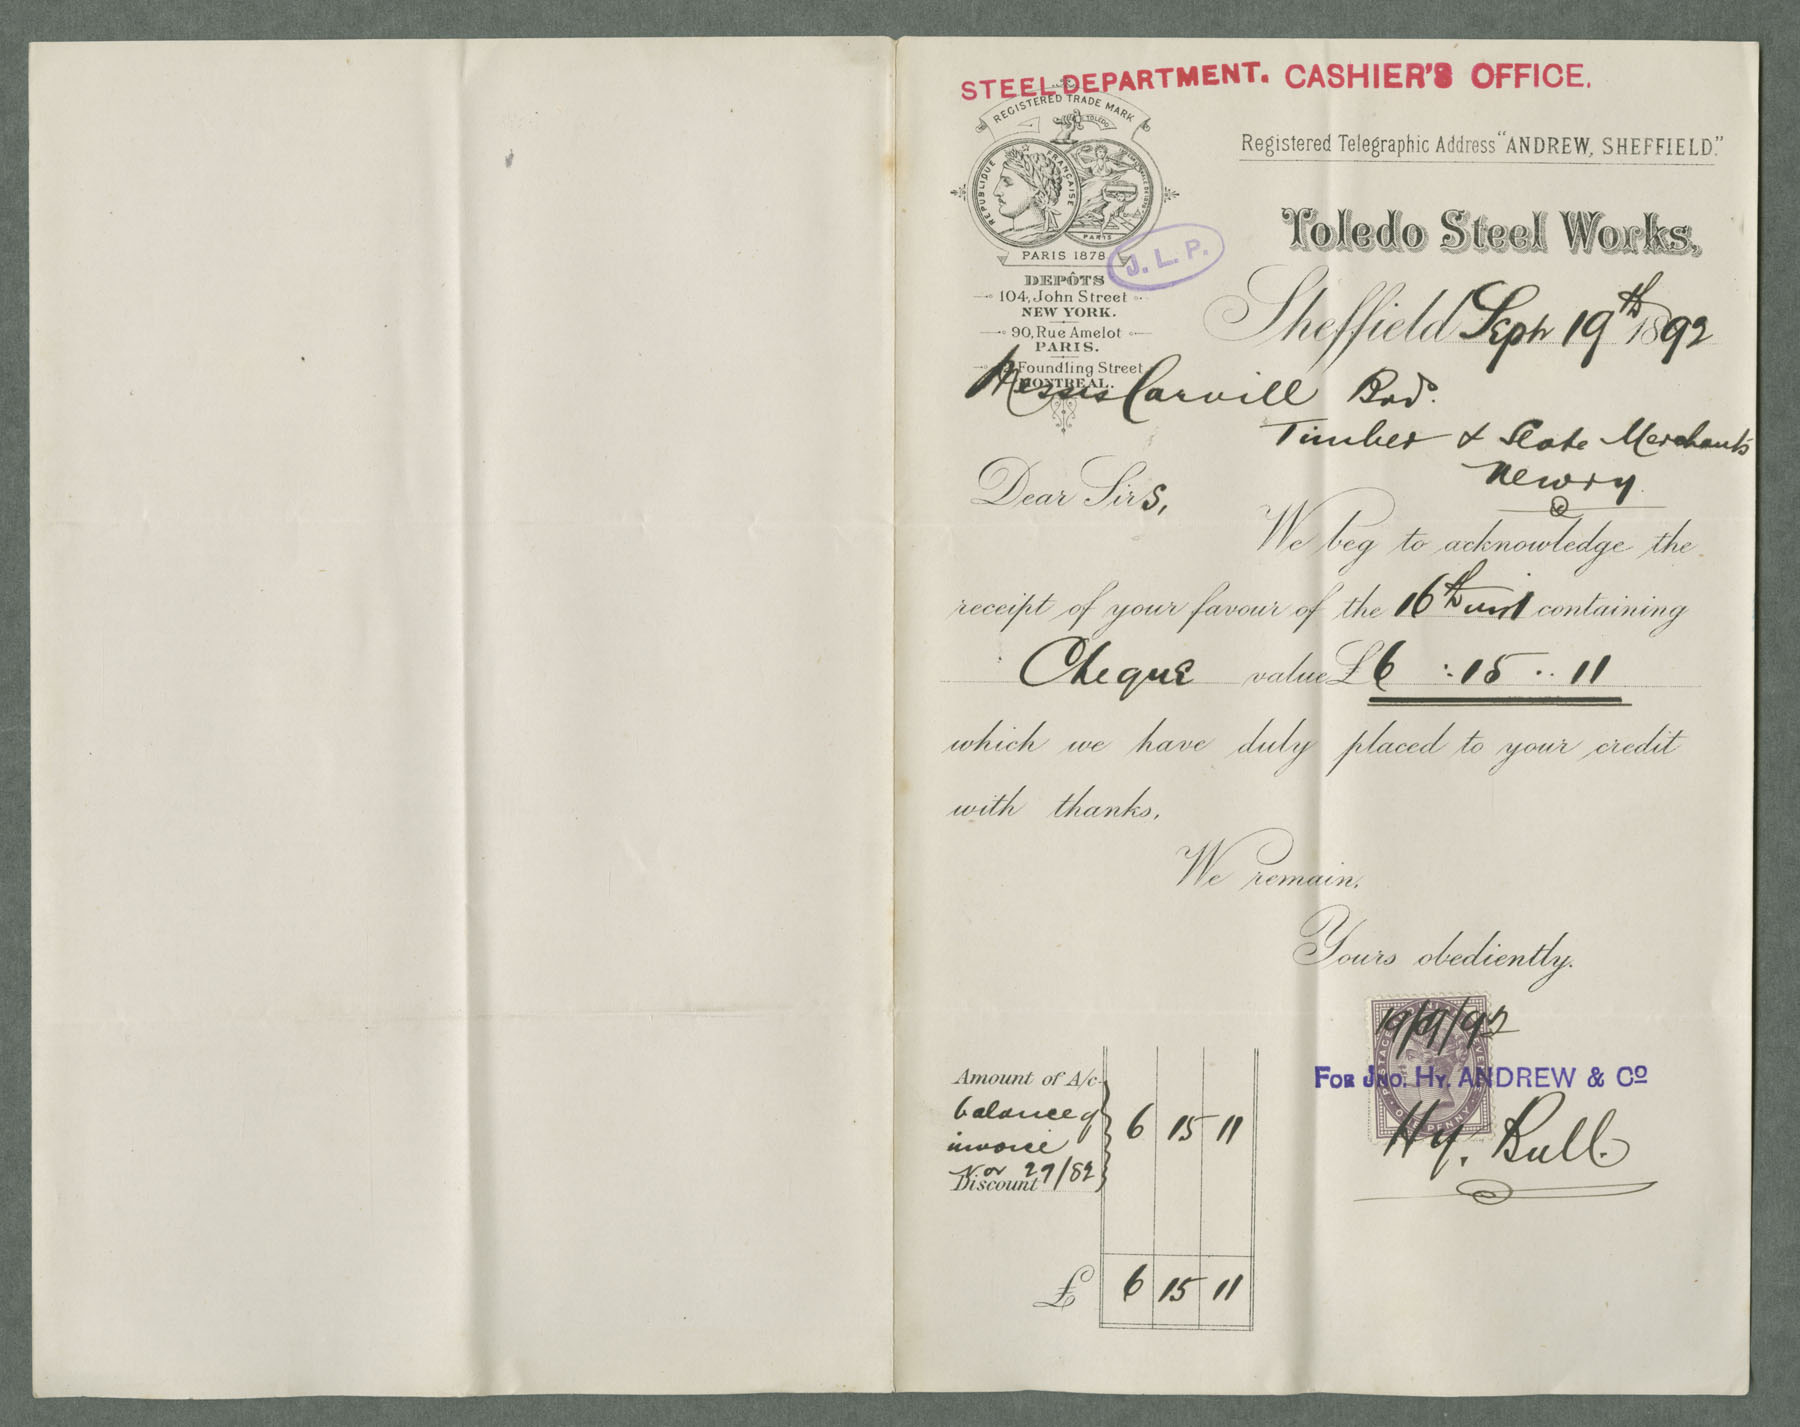 STEEL DEPARTMENT. CASHIER'S OFFICE.
REGISTERED TRADE MARK
TOLEDO
REPUBLIQUE FRANÇAISE
PARIS
PARIS 1878
J. L. P.
DEPÔTS
104, John Street
NEW YORK.
90, Rue Amelot
PARIS.
Foundling Street
MONTREAL.
Registered Telegraphic Address "ANDREW, SHEFFIELD."
Toledo Steel Works,
Sheffield Sept 19th 1892
Messrs Carvill Bros.
Timber & Slate Merchants
Newry
Dear Sirs,
We beg to acknowledge the
receipt of your favour of the 16th inst containing
Cheque value £6 : 15 .. 11
which we have duly placed to your credit
with thanks,
We remain,
Yours obediently.
19/9/92
FOR JNO. HY. ANDREW & CO
Hy. Bull.
Amount of A/c
balance of
invoice
Nov 29/82
Discount
6 15 11
£ 6 15 11